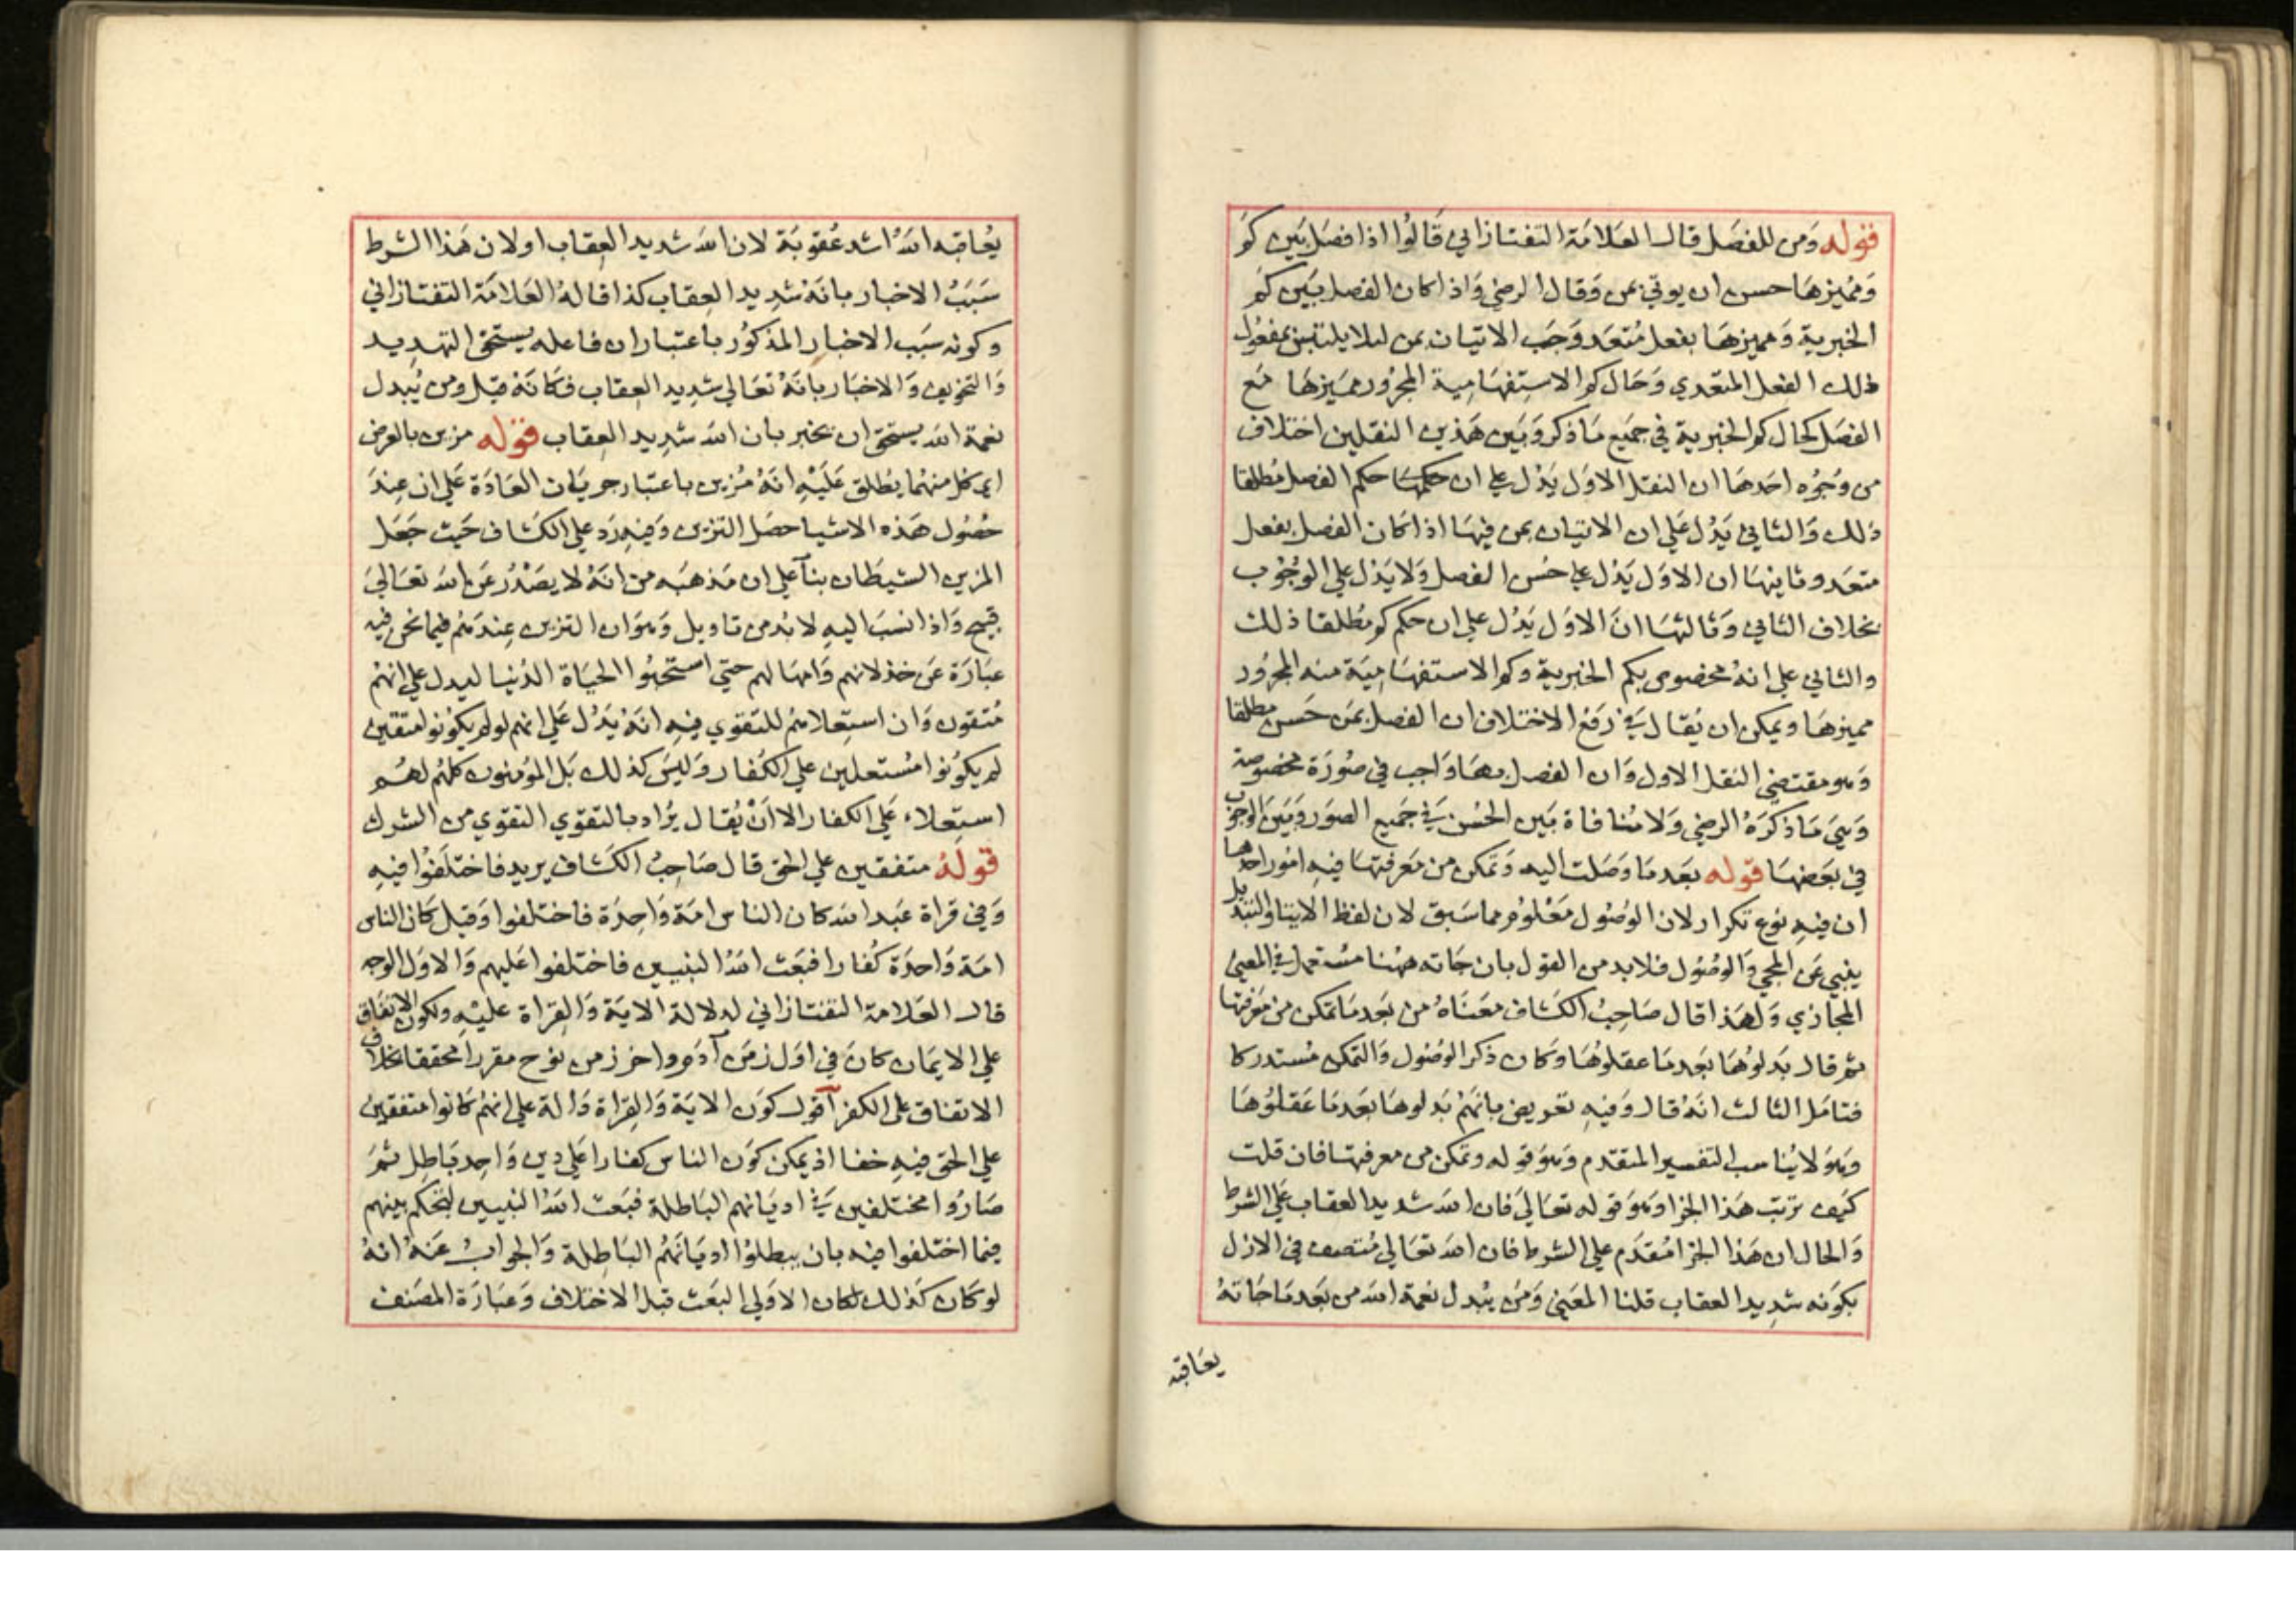 قوله ومن للفصل قال العلامة التفتازاني قالوا اذا فصل بين كم
ومميزها حسن ان يوتي بمن وقال الرضي واذا كان الفصل بين كم
الخبرية ومميزها بفعل متعد وجب الاتيان بمن ليلا يلتبس بمفعول
ذلك الفعل المتعدي وحال كم الاستفهامية المجرور مميزها مع
الفصل كحال كم الخبرية في جميع ما ذكر وبين هذين النقلين اختلاف
من وجوه احدها ان النقل الاول يدل علي ان حكمها حكم الفصل مطلقا
ذلك والثاني يدل علي ان الاتيان بمن فيها اذا كان الفصل بفعل
متعد وثانيها ان الاول يدل علي حسن الفصل ولا يدل علي الوجوب
بخلاف الثاني وثالثها ان الاول يدل علي ان حكم كم مطلقا ذلك
والثاني علي انه مخصوص بكم الخبرية وكم الاستفهامية منه المجرور
مميزها ويمكن ان يقال في رفع الاختلاف ان الفصل بمن حسن مطلقا
وهو مقتضي النقل الاول وان الفصل بها واجب في صورة مخصوصة
وهي ما ذكره الرضي ولا منافاة بين الحسن في جميع الصور وبين الوجوب
في بعضها قوله بعد ما وصلت اليه وتمكن من معرفتها فيه امور احدها
ان فيه نوع تكرار لان الوصول معلوم مما سبق لان لفظ الايتا والتبديل
ينبي عن المجي والوصول فلا بد من القول بان جاته ههنا مستعمل في المعني
المجازي ولهذا قال صاحب الكشاف معناه من بعد ما تمكن من معرفتها
ثم قال بدلوها بعد ما عقلوها وكان ذكر الوصول والتمكن مستدركا
فتامل الثالث انه قال وفيه تعريض بانهم بدلوها بعد ما عقلوها
وهو لا يناسب التفسير المتقدم وهو قوله وتمكن من معرفتها فان قلت
كيف ترتب هذا الجزا وهو قوله تعالي فان الله شديد العقاب علي الشرط
والحال ان هذا الجزا مقدم علي الشرط فان الله تعالي متصف في الازل
بكونه شديد العقاب قلنا المعني ومن يبدل نعمة الله من بعد ما جاته
يعاقبه
يعاقبه الله اشد عقوبة لان الله شديد العقاب او لان هذا الشرط
سبب الاخبار بانه شديد العقاب كذا قاله العلامة التفتازاني
وكونه سبب الاخبار المذكور باعتبار ان فاعله يستحق التهديد
والتخويف والاخبار بانه تعالي شديد العقاب فكانه قيل ومن يبدل
نعمة الله يستحق ان يخبر بان الله شديد العقاب قوله مزين بالعرض
اي كل منهما يطلق عليه انه مزين باعتبار جريان العادة علي ان عند
حصول هذه الاشيا حصل التزين وفيه رد علي الكشاف حيث جعل
المزين الشيطان بنآ علي ان مذهبه من انه لا يصدر عن الله تعالي
قبيح واذا نسب اليه لا بد من تاويل وهو ان التزين عندهم فيما نحن فيه
عبارة عن خذلانهم وامهالهم حتي استحبوا الحياة الدنيا ليدل علي انهم
متقون وان استعلاهم للتقوي فيه انه يدل علي انهم لو لم يكونوا متقين
لم يكونوا مستعلين علي الكفار وليس كذلك بل المؤمنون كلهم لهم
استعلاء علي الكفار الا ان يقال يراد بالتقوي التقوي من الشرك
قوله متفقين علي الحق قال صاحب الكشاف يريد فاختلفوا فيه
وفي قراة عبد الله كان الناس امة واحدة فاختلفوا وقيل كان الناس
امة واحدة كفارا فبعث الله النبيين فاختلفوا عليهم والاول الوجه
قال العلامة التفتازاني لدلالة الاية والقراة عليه ولكون الاتفاق
علي الايمان كان في اول زمن آدم واخر زمن نوح مقررا محققا بخلاف
الاتفاق علي الكفر آقول كون الاية والقراة دالة علي انهم كانوا متفقين
علي الحق فيه خفا اذ يمكن كون الناس كفارا علي دين واحد باطل ثم
صاروا مختلفين في اديانهم الباطلة فبعث الله النبيين لتحكم بينهم
فيما اختلفوا فيه بان يبطلوا اديانهم الباطلة والجواب عنه انه
لو كان كذلك لكان الاولي البعث قبل الاختلاف وعبارة المصنف